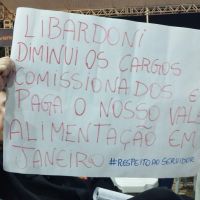 LIBARDONI
DIMINUI OS CARGOS
COMISSIONADOS E
PAGA O NOSSO VALE
ALIMENTAÇÃO EM
JANEIRO #RESPEITOAOSERVIDOR